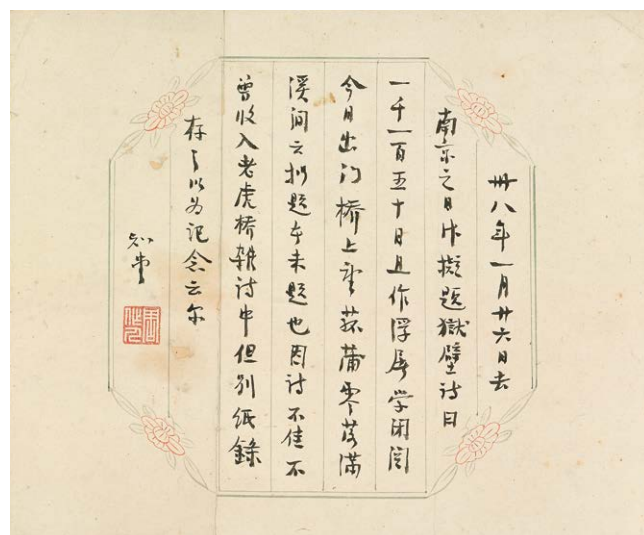 卅八年一月廿六日去
南京之日作擬題獄壁诗曰
一千一百五十日且作浮屠学闭关
今日出门桥上望菰蒲零落满
溪间云拟题本未题也因诗不佳不
曾收入老虎桥雜诗中但别纸錄
存之以为记念云尔
知堂
周作人